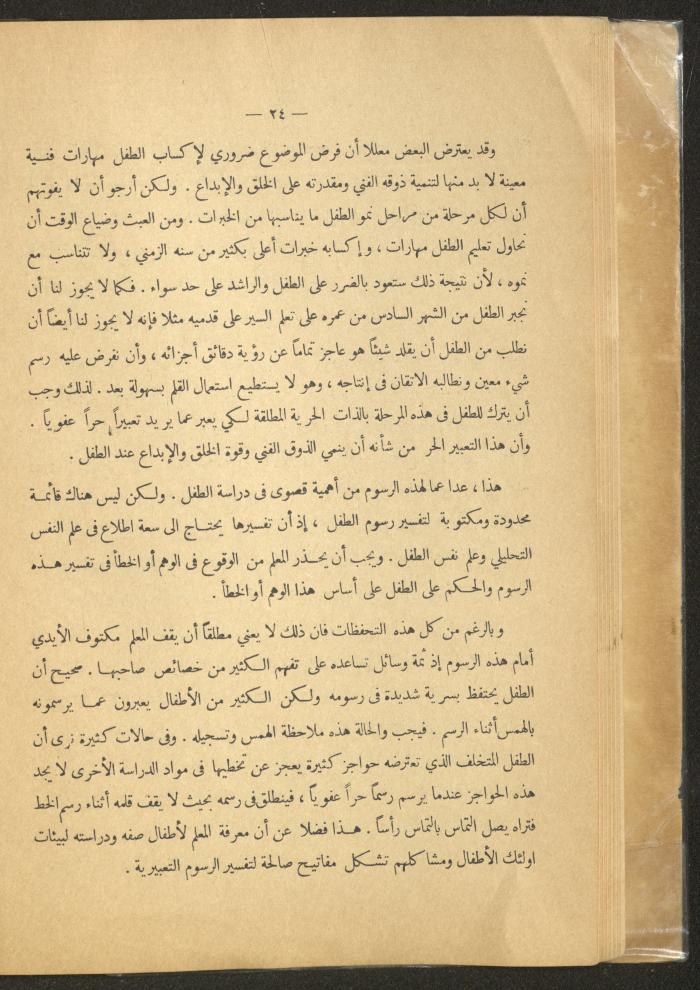 — ٢٤ —
وقد يعترض البعض معللا أن فرض الموضوع ضروري لإكساب الطفل مهارات فنية
معينة لا بد منها لتنمية ذوقه الفني ومقدرته على الخلق والإبداع . ولكن أرجو أن لا يفوتهم
أن لكل مرحلة من مراحل نمو الطفل ما يناسبها من الخبرات . ومن العبث وضياع الوقت أن
نحاول تعليم الطفل مهارات ، و إكسابه خبرات أعلى بكثير من سنه الزمني ، ولا تتناسب مع
نموه ، لأن نتيجة ذلك ستعود بالضرر على الطفل والراشد على حد سواء . فكما لا يجوز لنا أن
نجبر الطفل من الشهر السادس من عمره على تعلم السير على قدميه مثلا فإنه لا يجوز لنا أيضاً أن
نطلب من الطفل أن يقلد شيئاً هو عاجز تماماً عن رؤية دقائق أجزائه ، وأن نفرض عليه رسم
شيء معين ونطالبه الاتقان فى إنتاجه ، وهو لا يستطيع استعمال القلم بسهولة بعد . لذلك وجب
أن يترك للطفل فى هذه المرحلة بالذات الحرية المطلقة لكي يعبر عما يريد تعبيراً حراً عفوياً .
وأن هذا التعبير الحر من شأنه أن ينمي الذوق الفني وقوة الخلق والإبداع عند الطفل .
هذا ، عدا عما لهذه الرسوم من أهمية قصوى فى دراسة الطفل . ولكن ليس هناك قائمة
محدودة ومكتوبة لتفسير رسوم الطفل ، إذ أن تفسيرها يحتاج الى سعة اطلاع فى علم النفس
التحليلي وعلم نفس الطفل . ويجب أن يحذر المعلم من الوقوع فى الوهم أو الخطأ فى تفسير هذه
الرسوم والحكم على الطفل على أساس هذا الوهم أو الخطأ .
و بالرغم من كل هذه التحفظات فان ذلك لا يعني مطلقاً أن يقف المعلم مكتوف الأيدي
أمام هذه الرسوم إذ ثمة وسائل تساعده على تفهم الكثير من خصائص صاحبها . صحيح أن
الطفل يحتفظ بسرية شديدة فى رسومه ولكن الكثير من الأطفال يعبرون عما يرسمونه
بالهمس أثناء الرسم . فيجب والحالة هذه ملاحظة الهمس وتسجيله . وفى حالات كثيرة نرى أن
الطفل المتخلف الذي تعترضه حواجز كثيرة يعجز عن تخطيها فى مواد الدراسة الأخرى لا يجد
هذه الحواجز عندما يرسم رسماً حراً عفوياً ، فينطلق فى رسمه بحيث لا يقف قلمه أثناء رسم الخط
فتراه يصل التماس بالتماس رأساً . هذا فضلا عن أن معرفة المعلم لأطفال صفه ودراسته لبيئات
اولئك الأطفال ومشاكلهم تشكل مفاتيح صالحة لتفسير الرسوم التعبيرية .